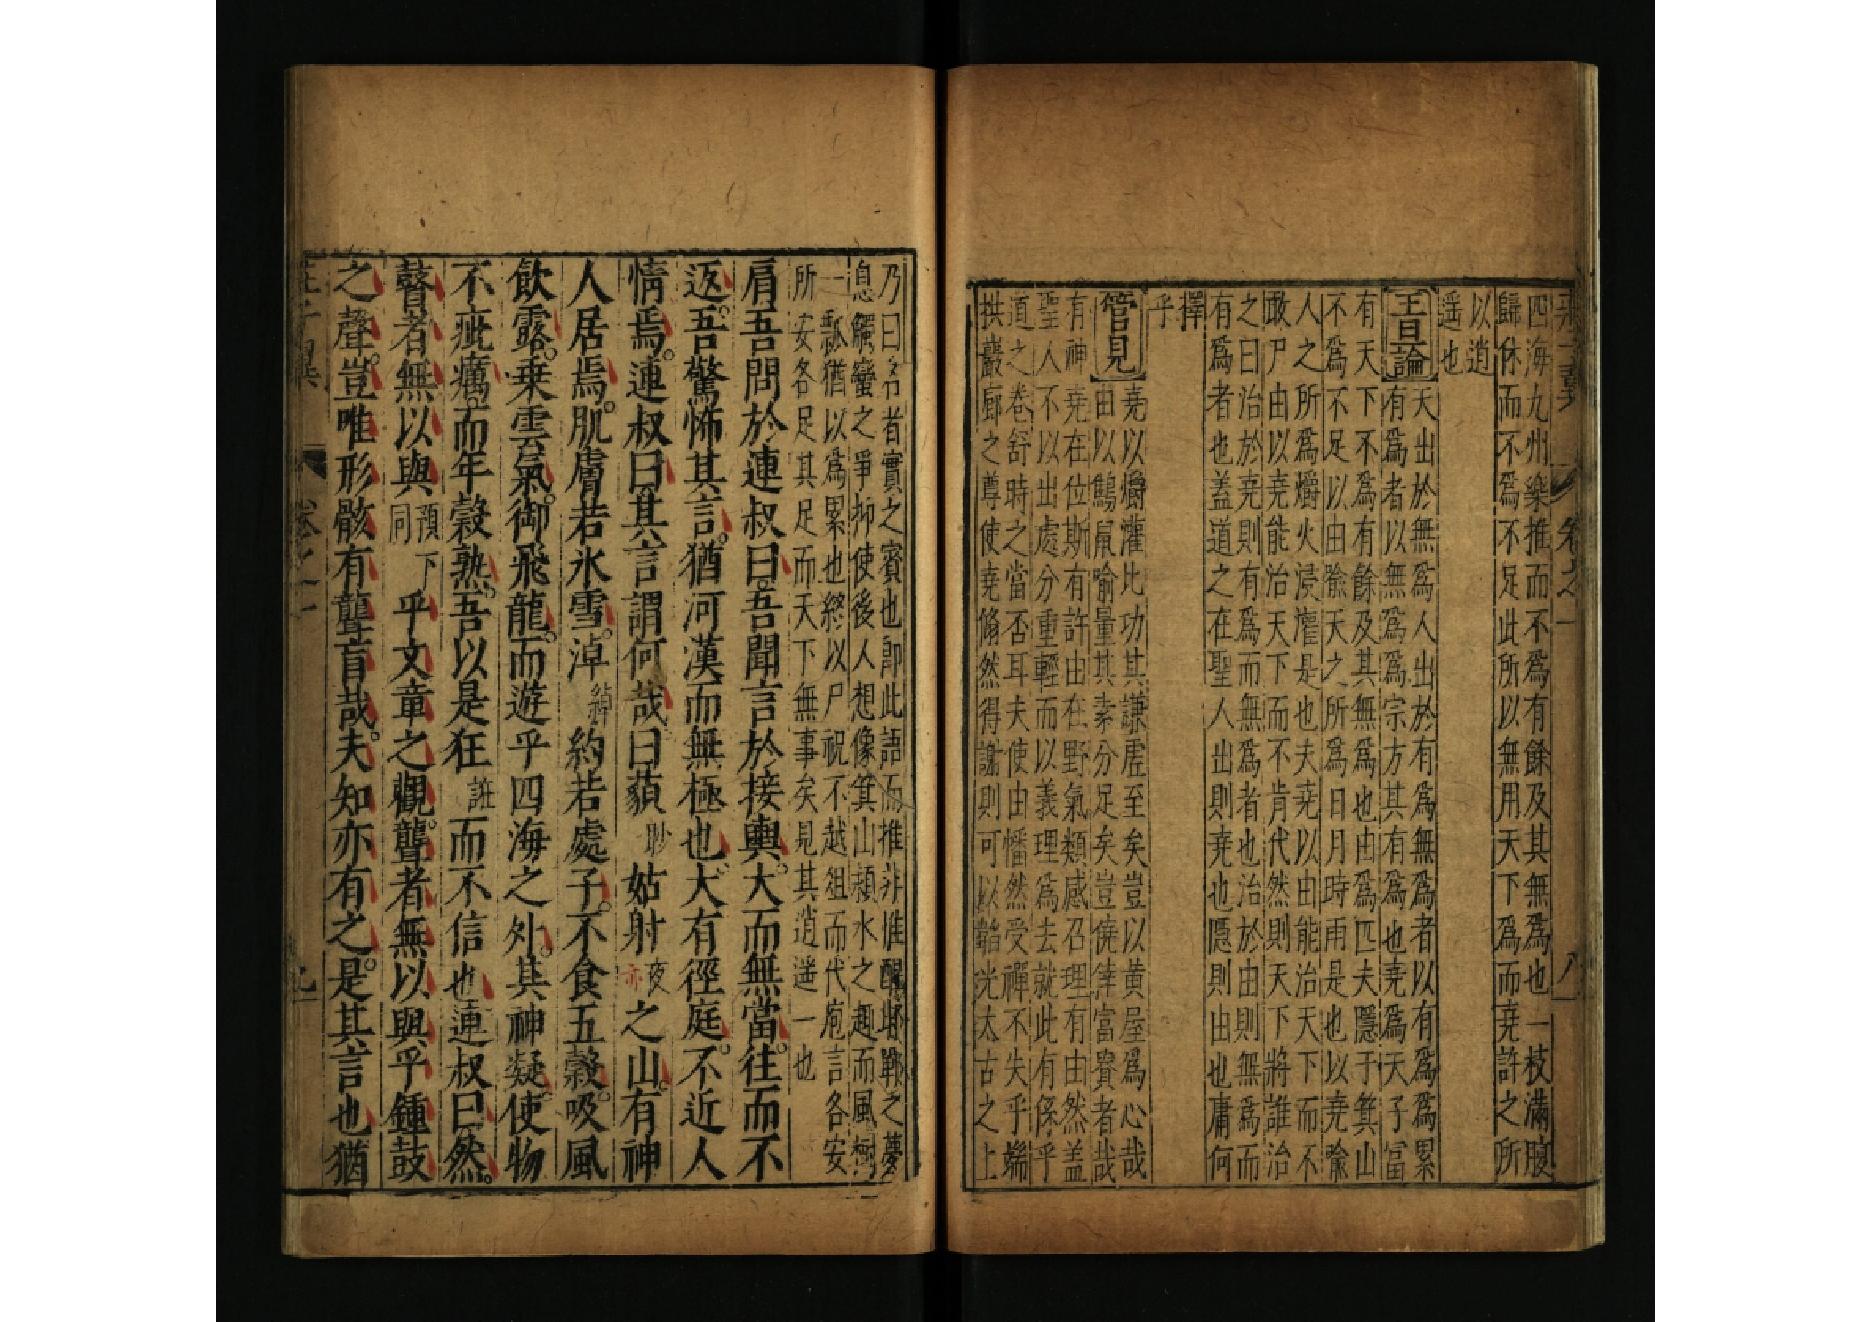 四海九州樂推而不爲有餘及其無爲也一枝滿腹
歸休而不爲不足此所以無用天下爲而堯許之所
以逍
遥也
王旦論 天出於無爲人出於有爲無爲者以有爲爲累
有爲者以無爲爲宗方其有爲也堯爲天子富
有天下不爲有餘及其無爲也由爲匹夫隱于箕山
不爲不足以由隃天之所爲日月時雨是也以堯隃
人之所爲爝火浸灌是也夫堯以由能治天下而不
敢尸由以堯能治天下而不肯代然則天下將誰治
之曰治於堯則有爲而無爲者也治於由則無爲而
有爲者也蓋道之在聖人出則堯也隱則由也庸何
擇
乎
管見 堯以爝灌比功其謙虛至矣豈以黃屋爲心哉
由以鷦鼠喻量其素分足矣豈僥倖富貴者哉
有神堯在位斯有許由在野氣類感召理有由然蓋
聖人不以出處分重輕而以義理爲去就此有係乎
道之卷舒時之當否耳夫使由幡然受禪不失乎端
拱巖廊之尊使堯翛然得謝則可以韜光太古之上
乃曰名者實之賓也即此語而推非惟醒邯鄲之夢
息觸蠻之爭抑使後人想像箕山潁水之趣而風樹
一瓢猶以爲累也終以尸祝不越俎而代庖言各安
所安各足其足而天下無事矣見其逍遥一也
肩吾問於連叔曰。吾聞言於接輿。大而無當。往而不
返。吾驚怖其言。猶河漢而無極也。大有徑庭。不近人
情焉。連叔曰其言謂何哉曰藐眇姑射夜亦之山。有神
人居焉。肌膚若氷雪。淖綽約若處子。不食五穀。吸風
飲露。乘雲氣。御飛龍。而遊乎四海之外。其神凝。使物
不疵癘。而年穀熟。吾以是狂誑而不信也連叔曰然。
瞽者無以與預下同乎文章之觀。聾者無以與乎鍾鼓
之聲。豈唯形骸有聾盲哉。夫知亦有之。是其言也猶